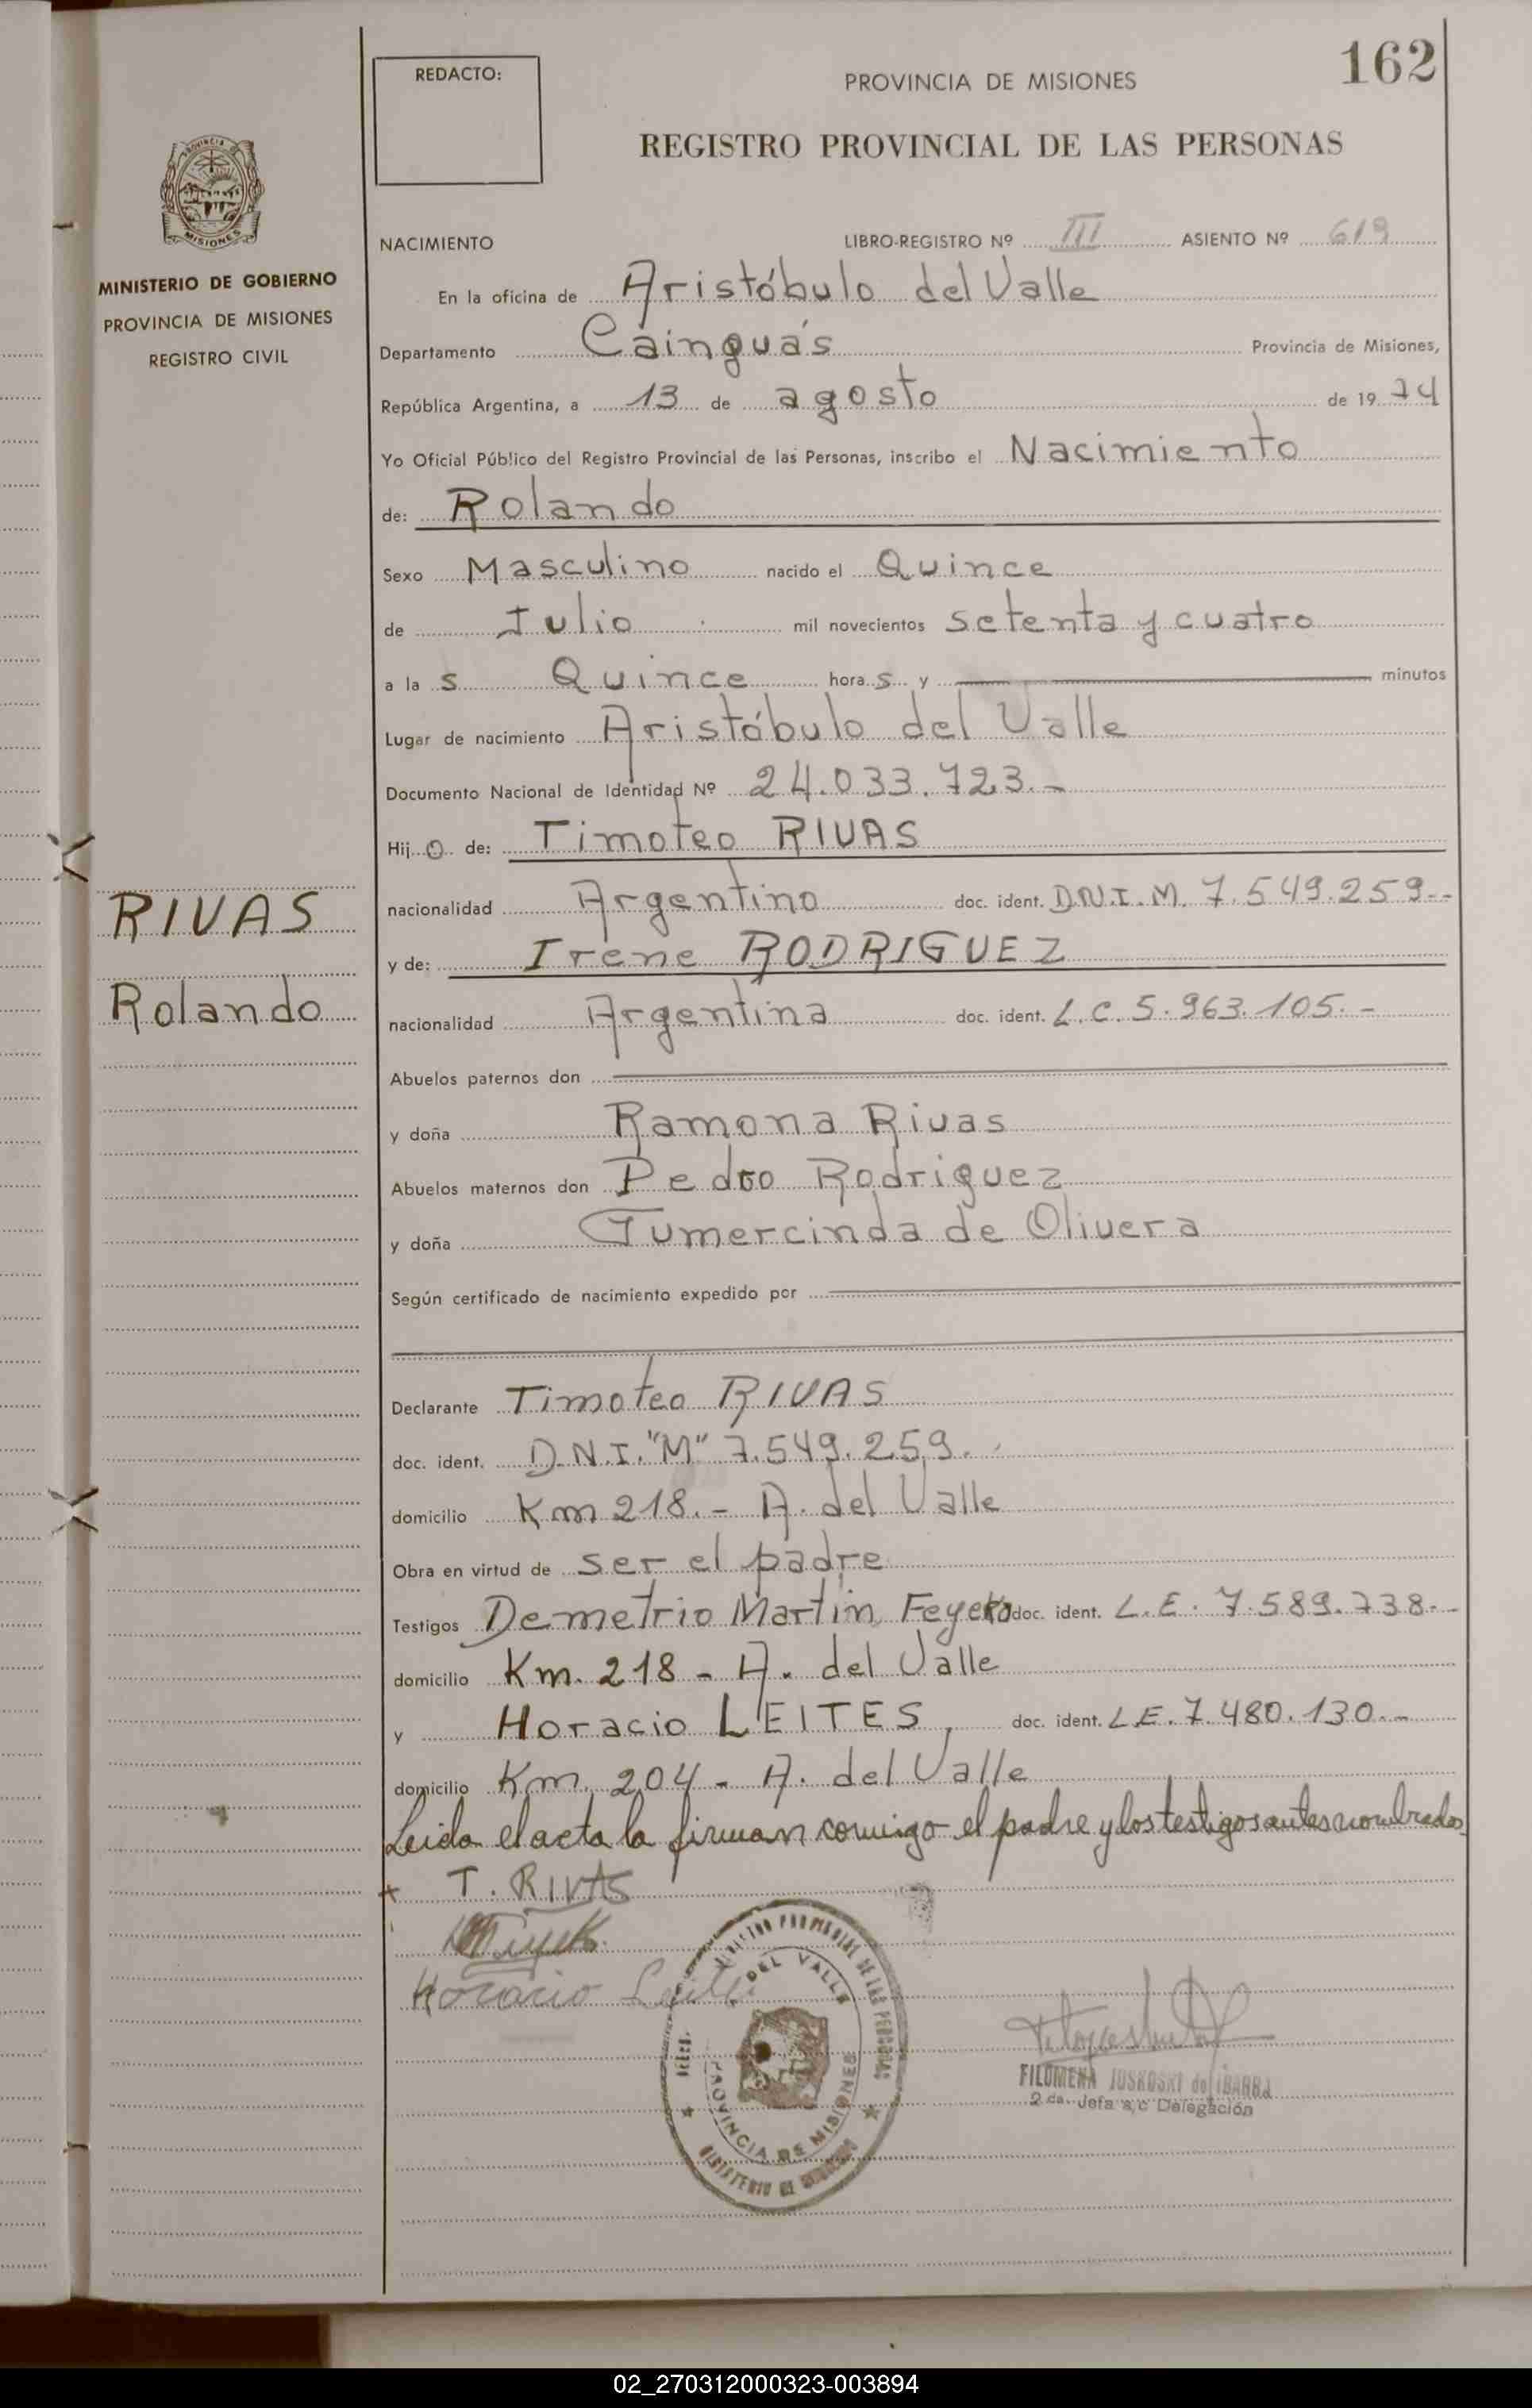 162
REDACTO:
PROVINCIA DE MISIONES
REGISTRO PROVINCIAL DE LAS PERSONAS
MISIONES
MINISTERIO DE GOBIERNO
PROVINCIA DE MISIONES
REGISTRO CIVIL
RIVAS
Rolando
NACIMIENTO LIBRO-REGISTRO Nº III ASIENTO Nº 619
En la oficina de Aristóbulo del Valle
Departamento Cainguás Provincia de Misiones,
República Argentina, a 13 de agosto de 1974
Yo Oficial Público del Registro Provincial de las Personas, inscribo el Nacimiento
de: Rolando
Sexo Masculino nacido el Quince
de Julio mil novecientos setenta y cuatro
a la s Quince hora s y minutos
Lugar de nacimiento Aristóbulo del Valle
Documento Nacional de Identidad Nº 24.033.723.-
Hij o de: Timoteo RIVAS
nacionalidad Argentino doc. ident. D.N.I.M. 7.549.259.-
y de: Irene RODRIGUEZ
nacionalidad Argentina doc. ident. L.C.5.963.105.-
Abuelos paternos don
y doña Ramona Rivas
Abuelos maternos don Pedro Rodriguez
y doña Gumercinda de Olivera
Según certificado de nacimiento expedido por
Declarante Timoteo RIVAS
doc. ident. D.N.I."M" 7.549.259.
domicilio Km 218.- A. del Valle
Obra en virtud de ser el padre
Testigos Demetrio Martin doc. ident. L.E. 7.589.738.-
domicilio Km. 218 - A. del Valle
y Horacio LEITES, doc. ident. L.E. 7.480.130.-
domicilio Km. 204 - A. del Valle
Leida el acta la firman conmigo el padre y los testigos antes nombrados
T. RIVAS
Horacio
REGISTRO PROVINCIAL DE LAS PERSONAS
DEL VALLE
PROVINCIA DE MISIONES
MINISTERIO DE GOBIERNO
FILOMENA JUSKOSKI de IBARRA
2 da. Jefa a/c Delegación
02_270312000323-003894